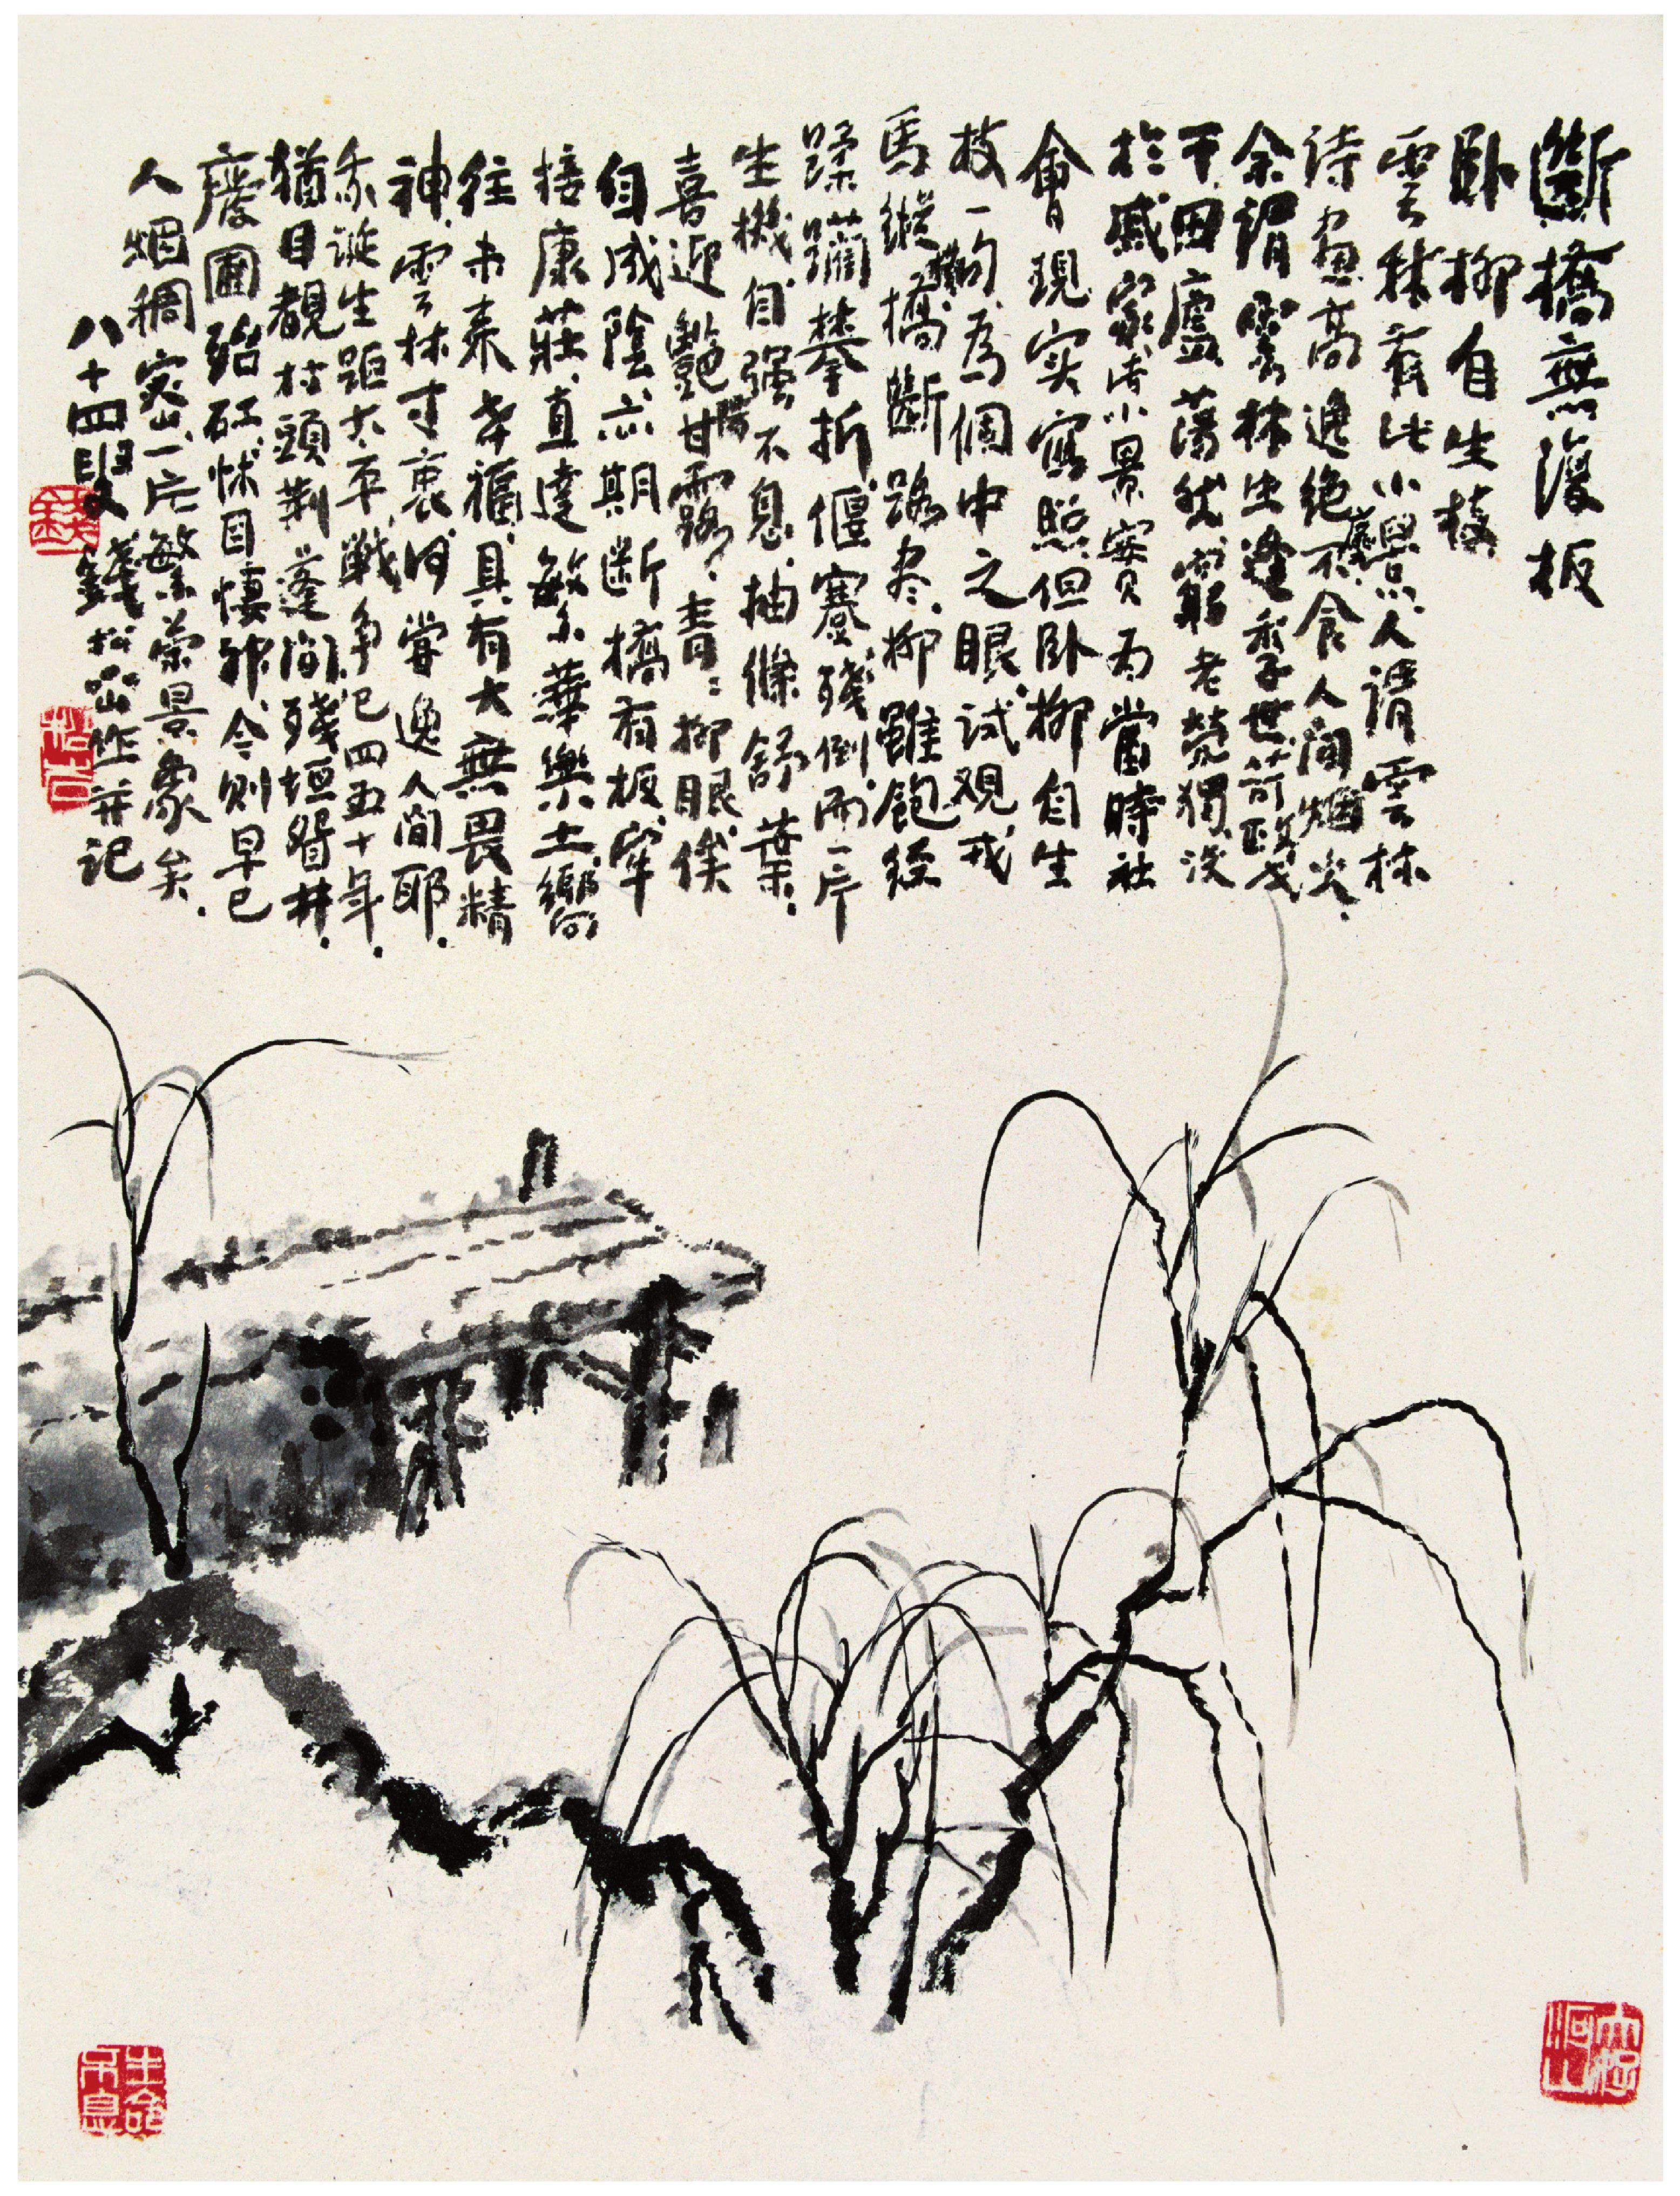 斷橋無復板
卧柳自生枝
雲林有此小景人謂雲林
诗畫高逸絶不食人间烟火
余謂雲林生逢季世苛政
干田廬蕩然窮老煢獨
於戚家
會現实寫照但卧柳自生
枝一句為個中之眼試观戎
馬縱橫橋斷路尽柳雖飽经
蹂躏攀折偃蹇殘倒而一片
生機自强不息抽條舒葉
喜迎艷陽甘露青青柳眼俟
自成陰亦期断橋有板牢
搭康莊直達繁華樂土嚮
往未来幸福具有大無畏精
神雲林寸衷何嘗逸人间耶
余诞生距太平戰争已四五十年
猶目覩村頭荆蓬间殘垣眢井
廢圃殆砡怵目悽神今则早已
人烟稠密一片繁荣景象矣
八十四叟錢松嵒作并记
大好河山